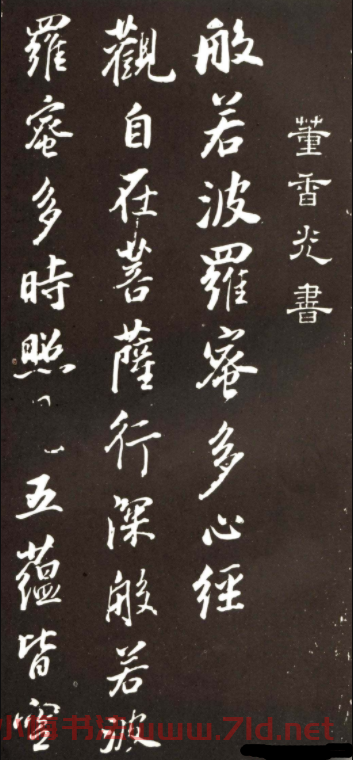 董香光書
般若波羅蜜多心經
觀自在菩薩行深般若波
羅蜜多時照五蘊皆空
书法www.7ld.net